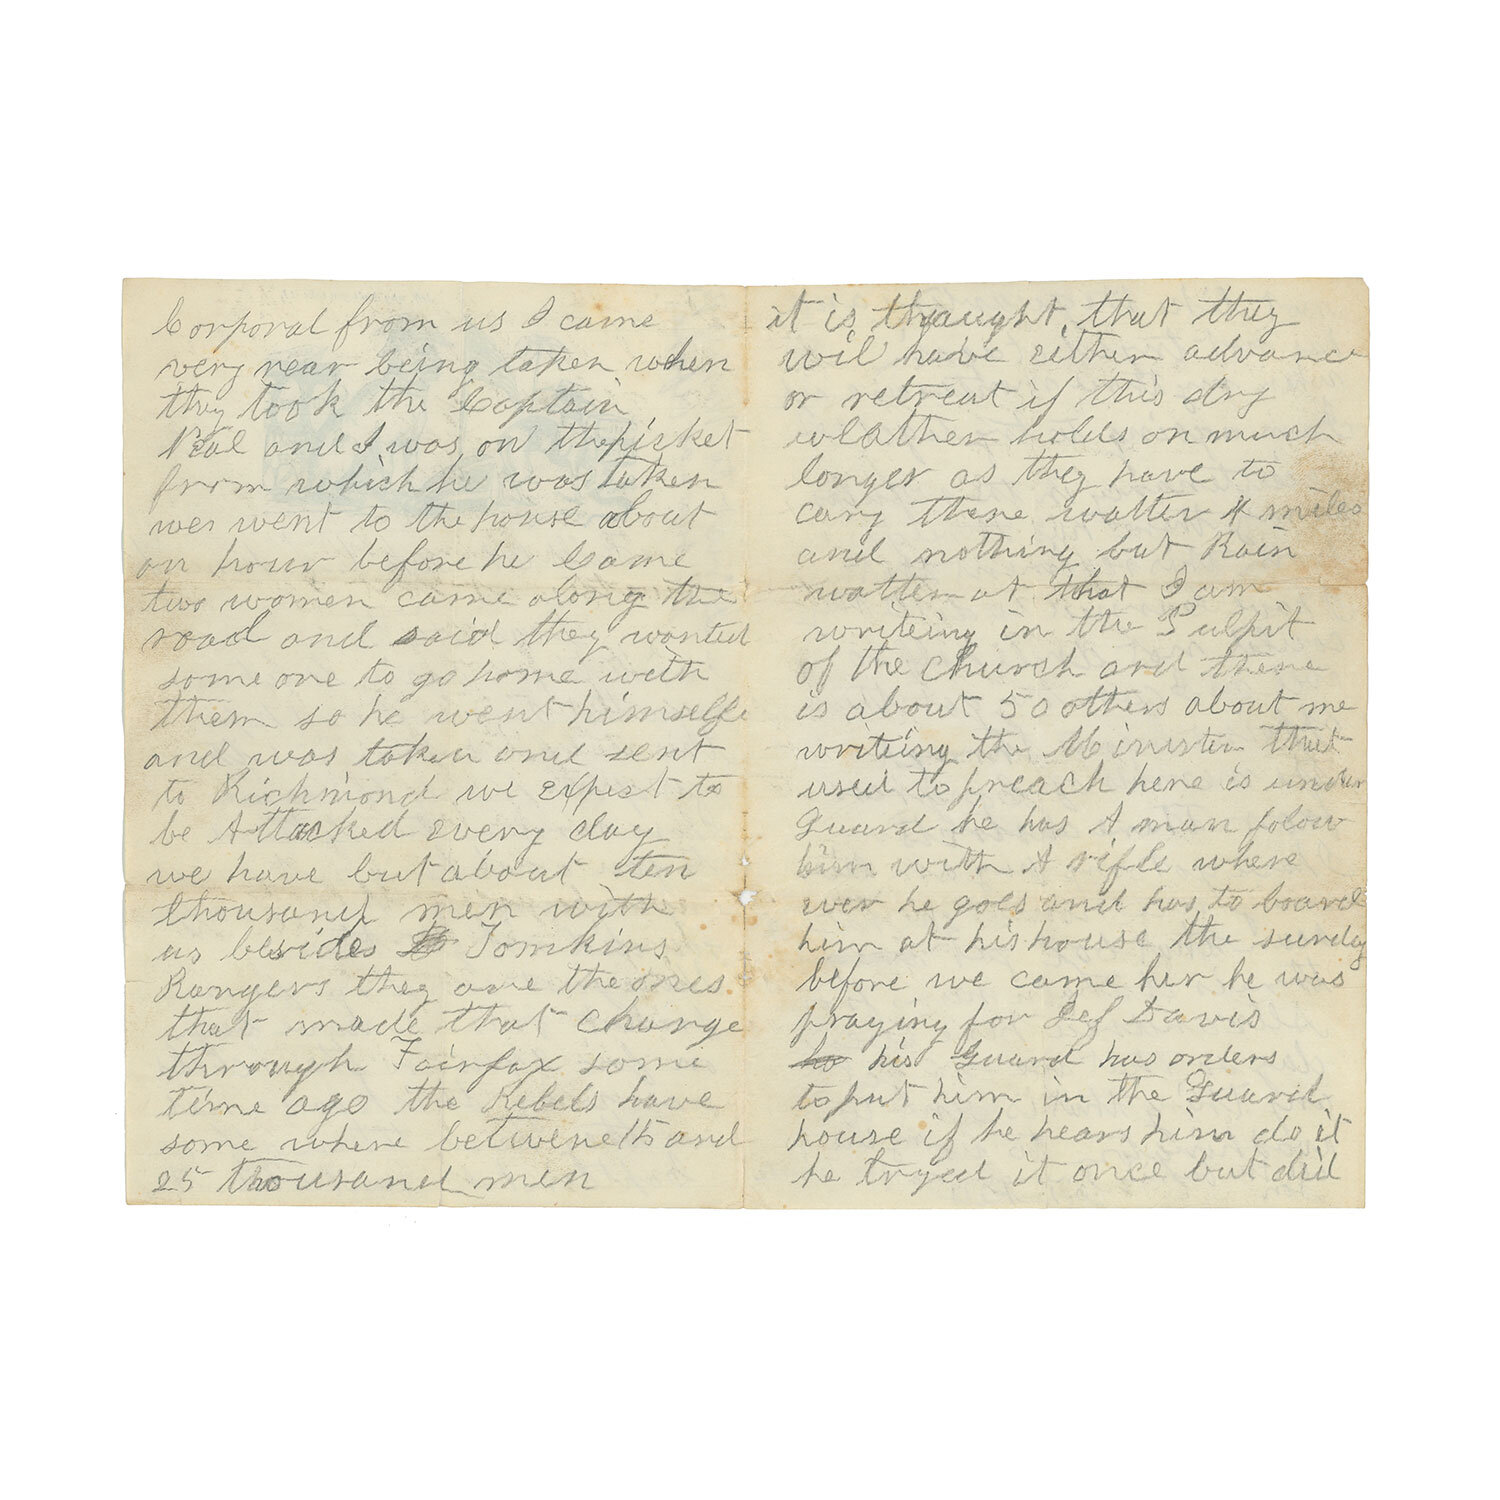 Corporal from us I came
very near being taken when
they took the Captain
Neal and I was on the picket
from which he was taken
wer went to the house about
an hour before he Came
two women came along the
road and said they wanted
some one to go home with
them so he went himself
and was taken and sent
to Richmond we expect to
be Attacked every day
we have but about ten
thousand men with
us besides Tomkins
Rangers they are the ones
that made that charge
through Fairfax some
time ago the Rebels have
some where betwene 15 and
25 thousand men
it is thyaught that they
wil have either advance
or retreat if this dry
weather holds on much
longer as they have to
cary there watter 4 miles
and nothing but Rain
watter at that I am
writeing in the Pulpit
of the church and there
is about 50 others about me
writeing the Minister that
used to preach here is under
Guard he has A man folow
him with A rifle where
ever he goes and has to board
him at his house the sunday
before we came her he was
praying for Jef Davis
his Guard has orders
to put him in the Guard
house if he hears him do it
he tryed it once but did